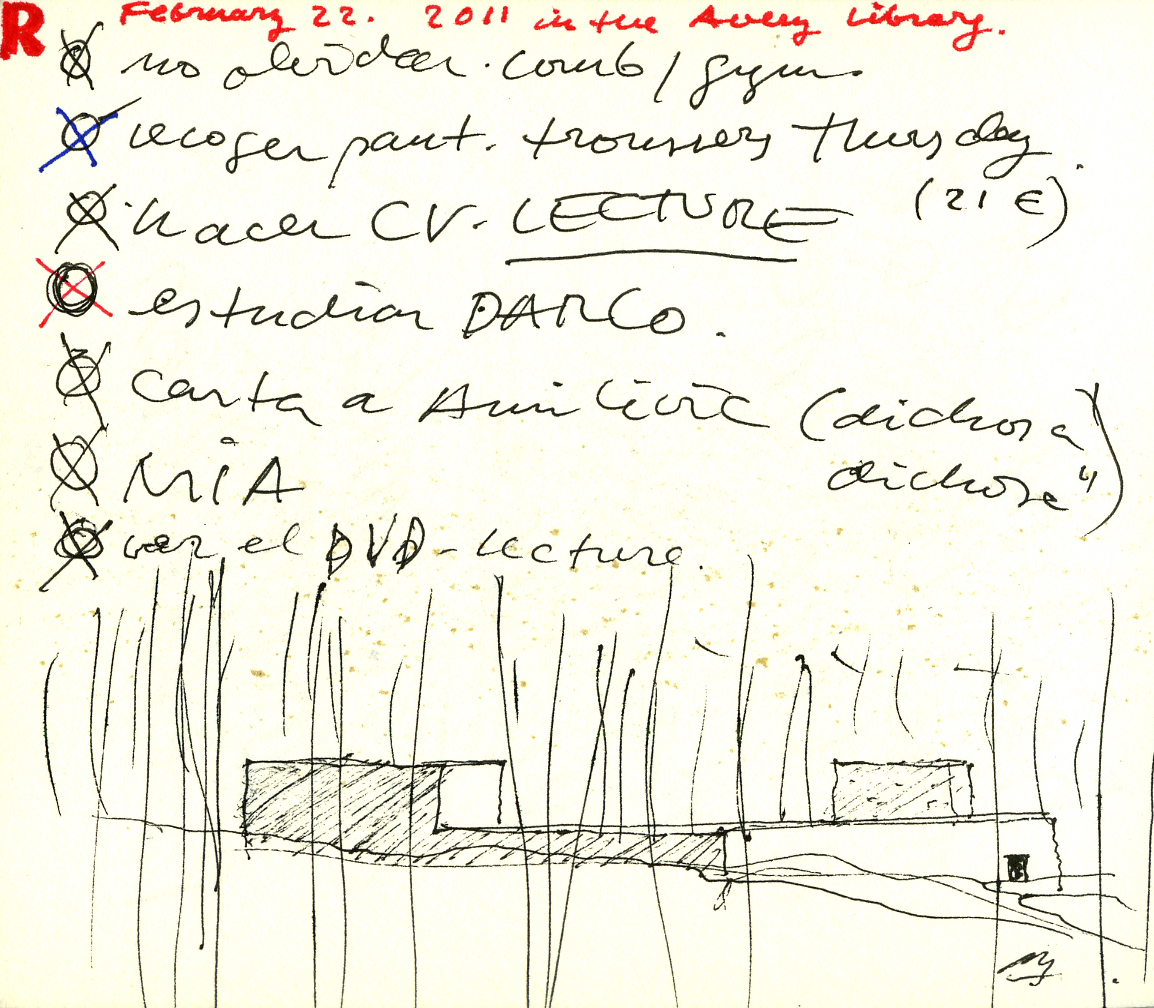 R
February 22. 2011 in the Avery Library.
no olvidar. comb/gym.
recoger pant. troussers Thursday.
hacer CV. LECTURE (21 €)
estudiar DARCO.
carta a (dichosa
MIA dichosa")
ver el DVD-lecture.